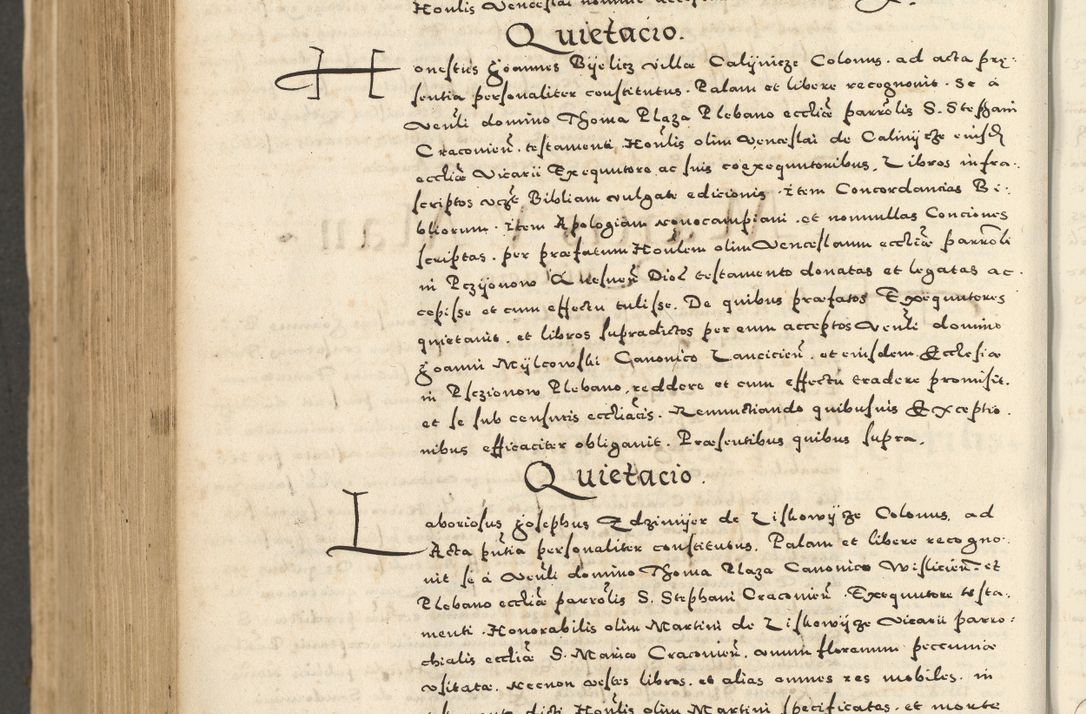 Honlis Venceslai nomine
Quietacio.
Honestus Joannes Bijelicz villæ Calijnicze Colonus. ad acta præ-
sentia personaliter constitutus. Palam et libere recognovit. Se à
Venli domino Thoma Plaza Plebano eccliæ parrolis S. Stephani
Craconien. testamenti Honlis olim Venceslai de Calinijcze eiusd
eccliæ Vicarii Exequutore ac suis coexequutoribus. Libros infra-
scriptos vcz Bibliam vulgatæ edicionis. Item Concordancias Bi-
bliorum. Item Apologiam campiani. et nonnullas Conciones
scriptas. per præfatum Honlem olim Venceslaum eccliæ parroli
in Pczijonow testamento donatas et legatas ac-
cepisse et cum effectu tulisse. De quibus præfatos Exequutores
quietauit. et libros supradictos per eum acceptos Venli domino
Joanni Mijlcowski Canonico Lancicien. et eiusdem Ecclesiæ
in Psczionow Plebano, reddere et cum effectu tradere promisit.
et se sub censuris eccliacis. Renunctiando quibusuis Exceptio-
nibus efficaciter obligauit. Præsentibus quibus supra.
Quietacio.
Laboriosus Josephus Zdzimijer de Liskowijcze Colonus. ad
Acta pntia personaliter constitutus. Palam et libere recogno-
uit se à Venli domino Thoma Plaza Canonico Wislicien. et
Plebano eccliæ parrolis S. Stephani Craconien. Exequutore testa-
menti. Honorabilis olim Martini de Liskowijcze Vicarii parro-
chialis eccliæ S. Mariæ Craconien. omnium florenum peccuniæ
vsitatæ. necnon vestes libros. et alias omnes res mobiles. in
dicti Honlis olim Martini specificatas. et morte